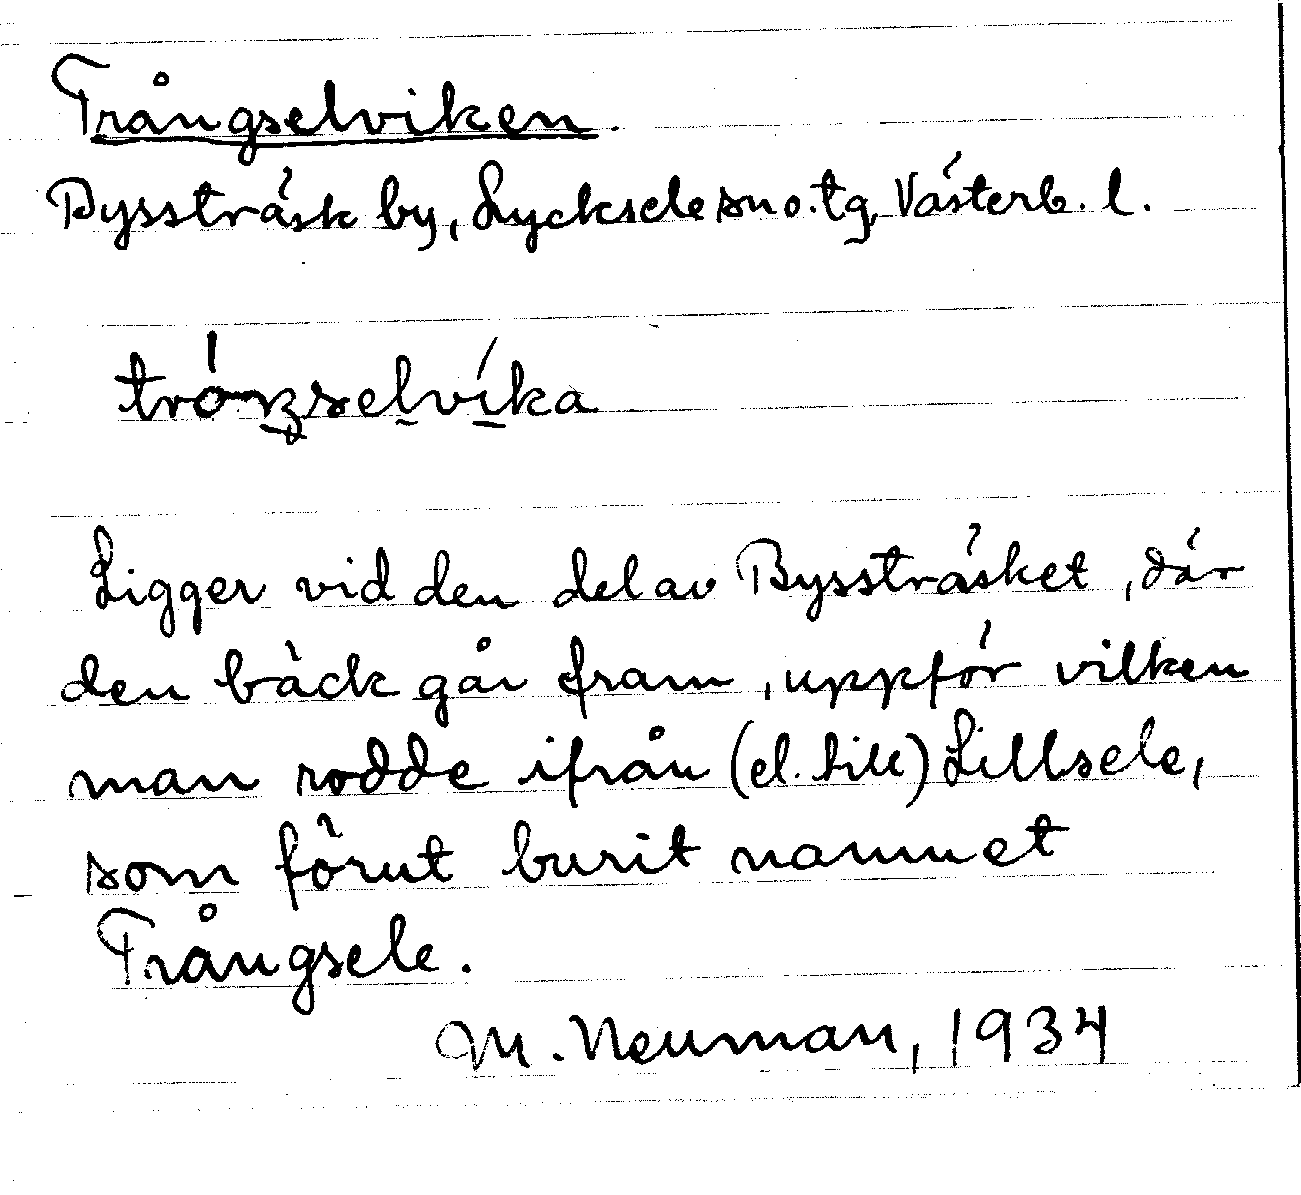 Trångselviken.
Byssträsk by, Lycksele sn o. tg, Västerb. l.
tróŋselvíka
Ligger vid den del av Byssträsket, där
den bäck går fram, uppför vilken
man rodde ifrån (el. till) Lillsele,
som förut burit namnet
Trångsele.
M. Neuman, 1934